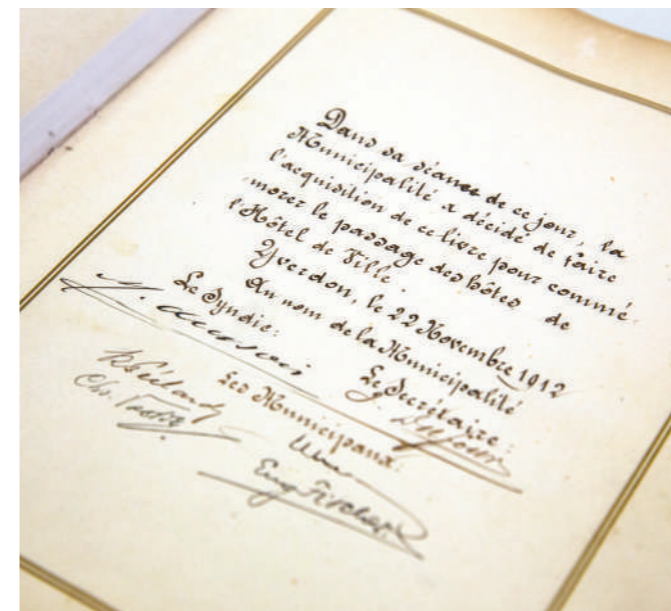 Dans sa séance de ce jour, la
Municipalité a décidé de faire
l'acquisition de ce livre pour commé-
morer le passage des hôtes de
l'Hôtel de Ville.
Yverdon, le 22 Novembre 1912
Au nom de la Municipalité
Le Syndic: Le Secrétaire:
Les Municipaux:
Eug. Fischer